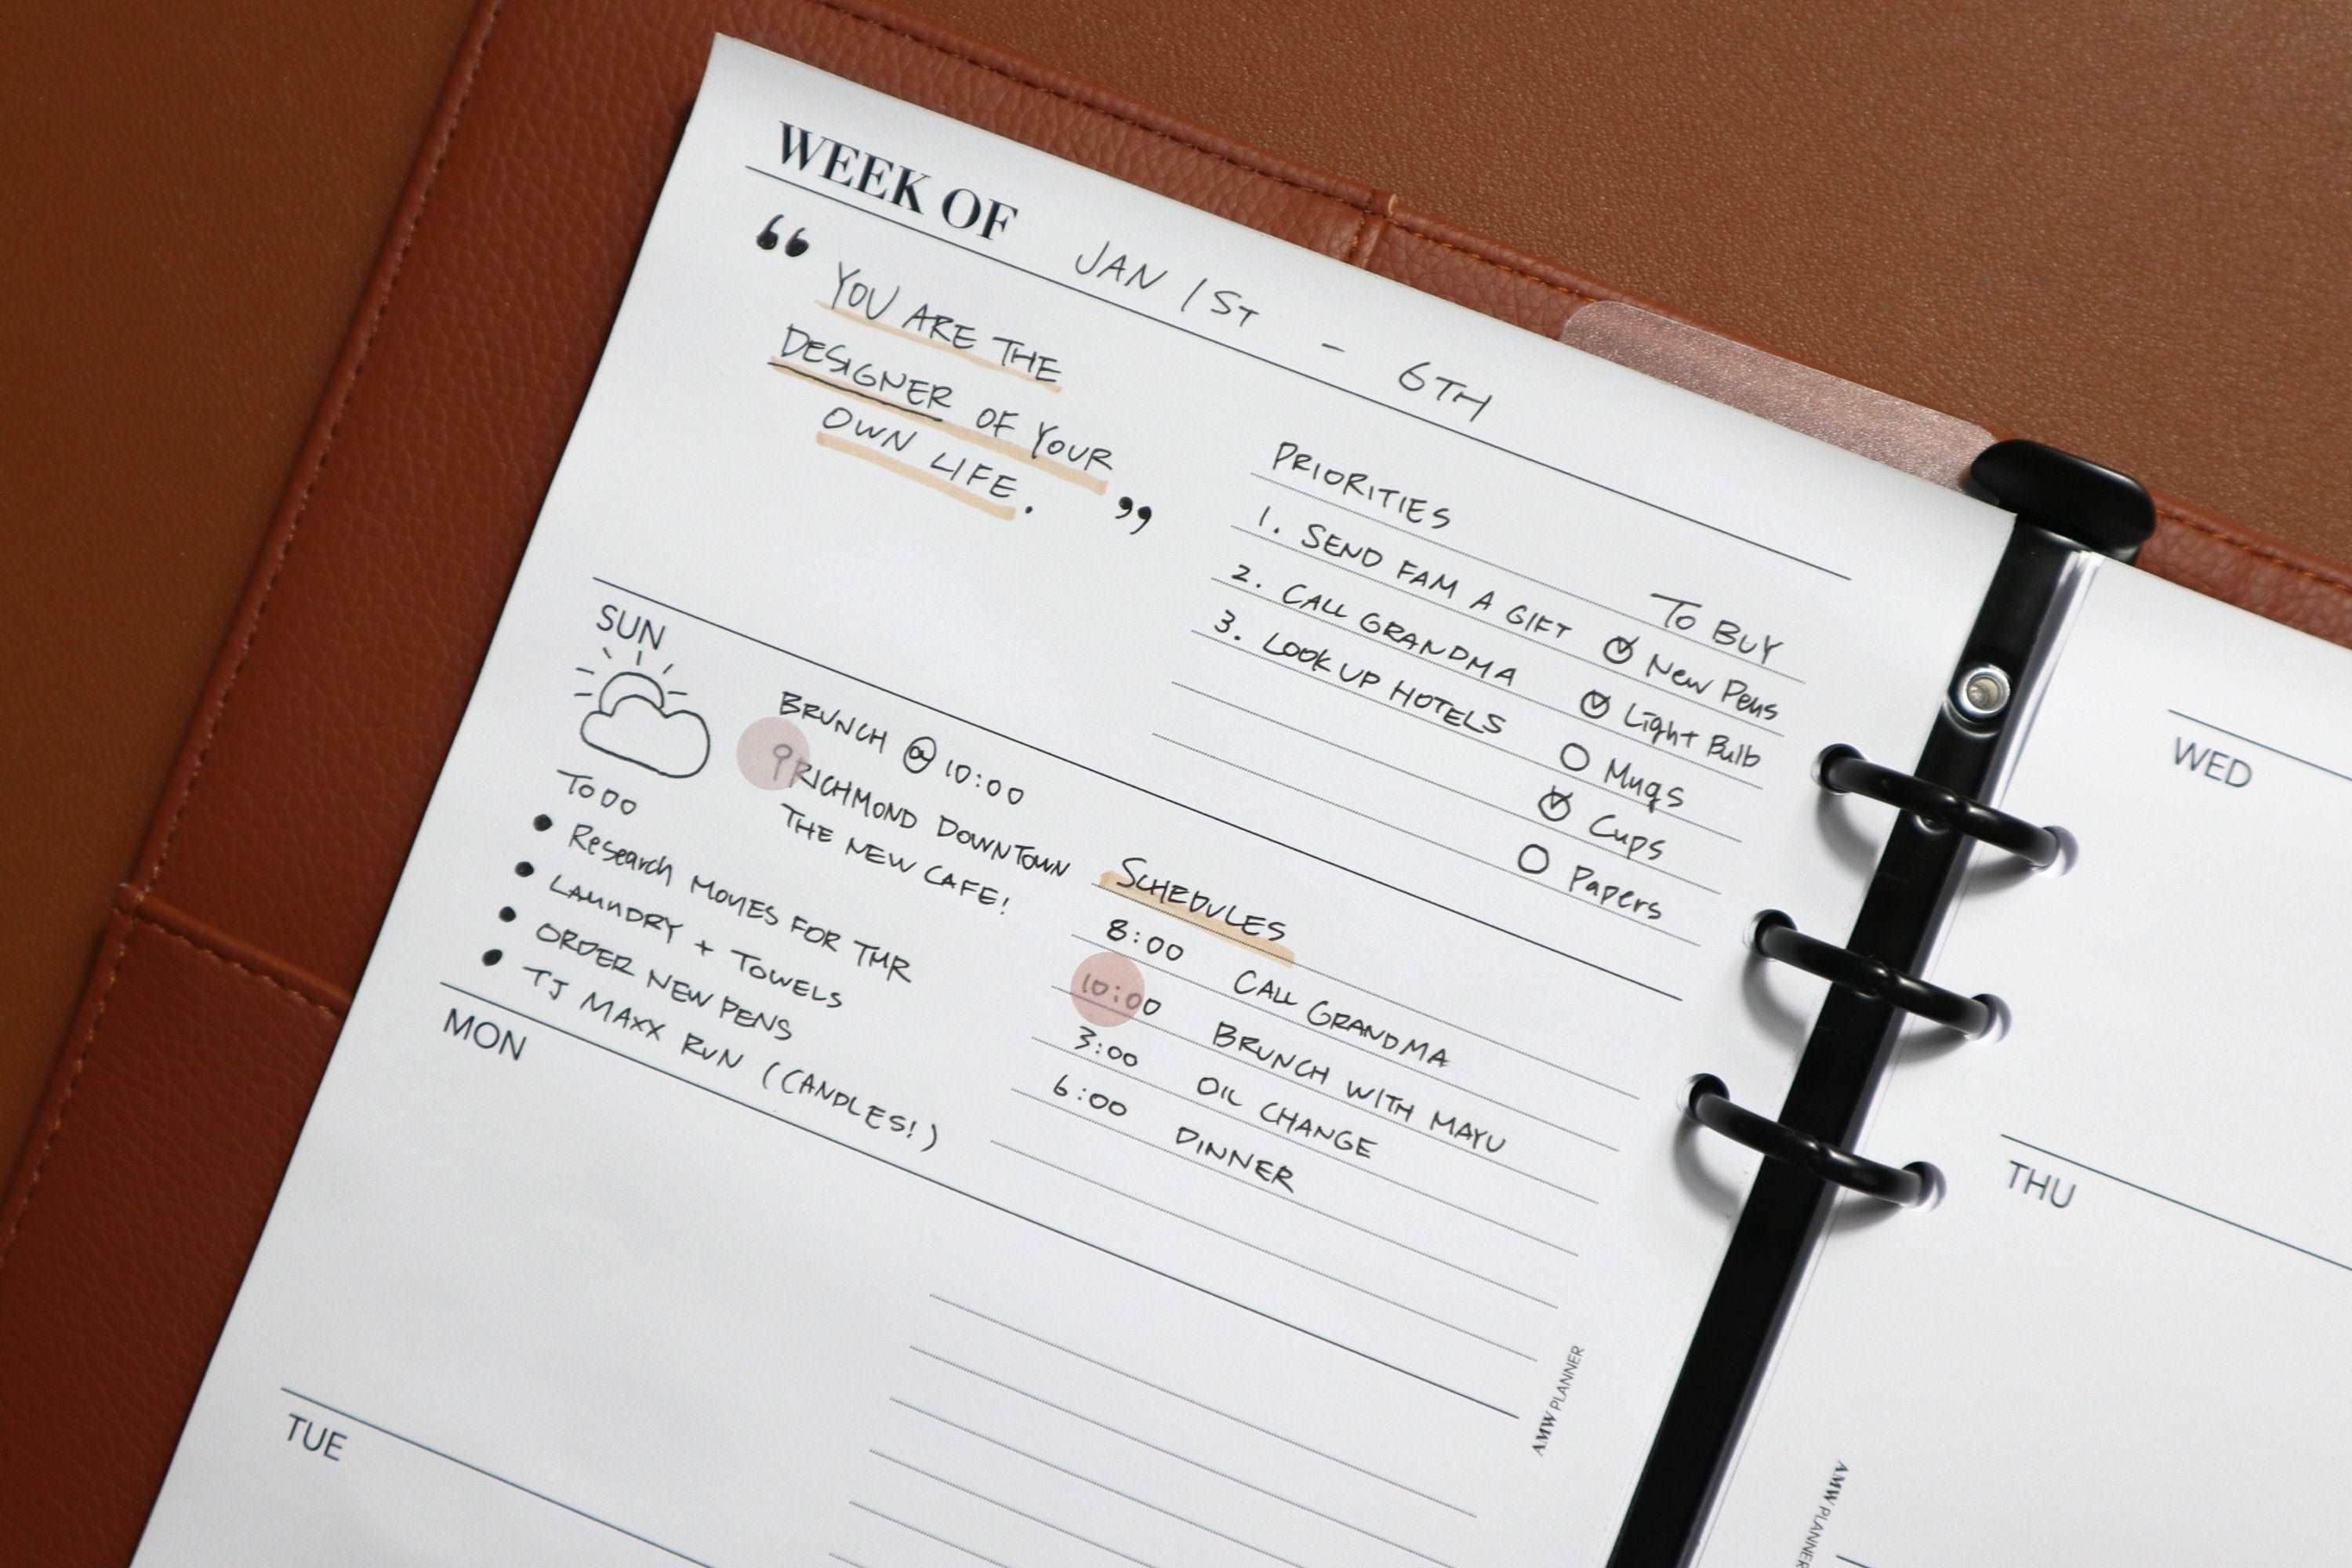 WEEK OF JAN 1ST - 6TH
“ YOU ARE THE
DESIGNER OF YOUR
OWN LIFE. ”
PRIORITIES
1. SEND FAM A GIFT
2. CALL GRANDMA
3. LOOK UP HOTELS
TO BUY
New Pens
Light Bulb
Mugs
Cups
Papers
SUN
BRUNCH @ 10:00
RICHMOND DOWNTOWN
THE NEW CAFE!
TO DO
• Research MOVIES FOR TMR
• LAUNDRY + TOWELS
• ORDER NEW PENS
• TJ MAXX RUN (CANDLES!)
SCHEDULES
8:00 CALL GRANDMA
10:00 BRUNCH WITH MAYU
3:00 OIL CHANGE
6:00 DINNER
MON
TUE
AMW PLANNER
WED
THU
AMW PLANNER